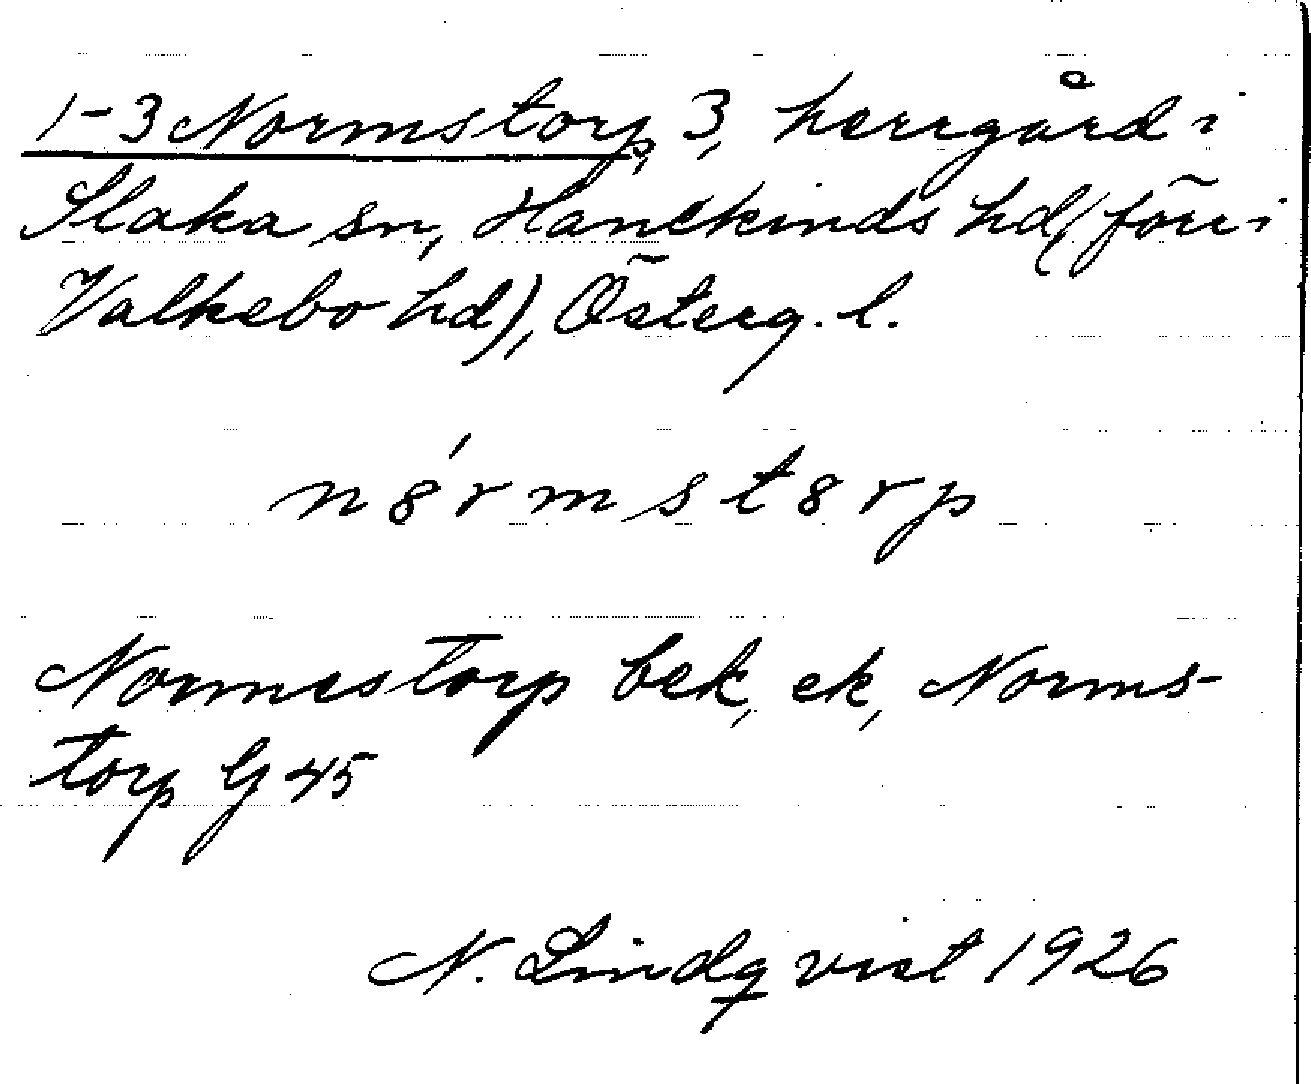 1-3 Normstorp, 3, herrgård i
Slaka sn, Hanekinds hd (förr i
Valkebo hd), Österg. l.
n8́rmst8rp
Normestorp bek, ek, Norms-
torp G 45
N. Lindqvist 1926